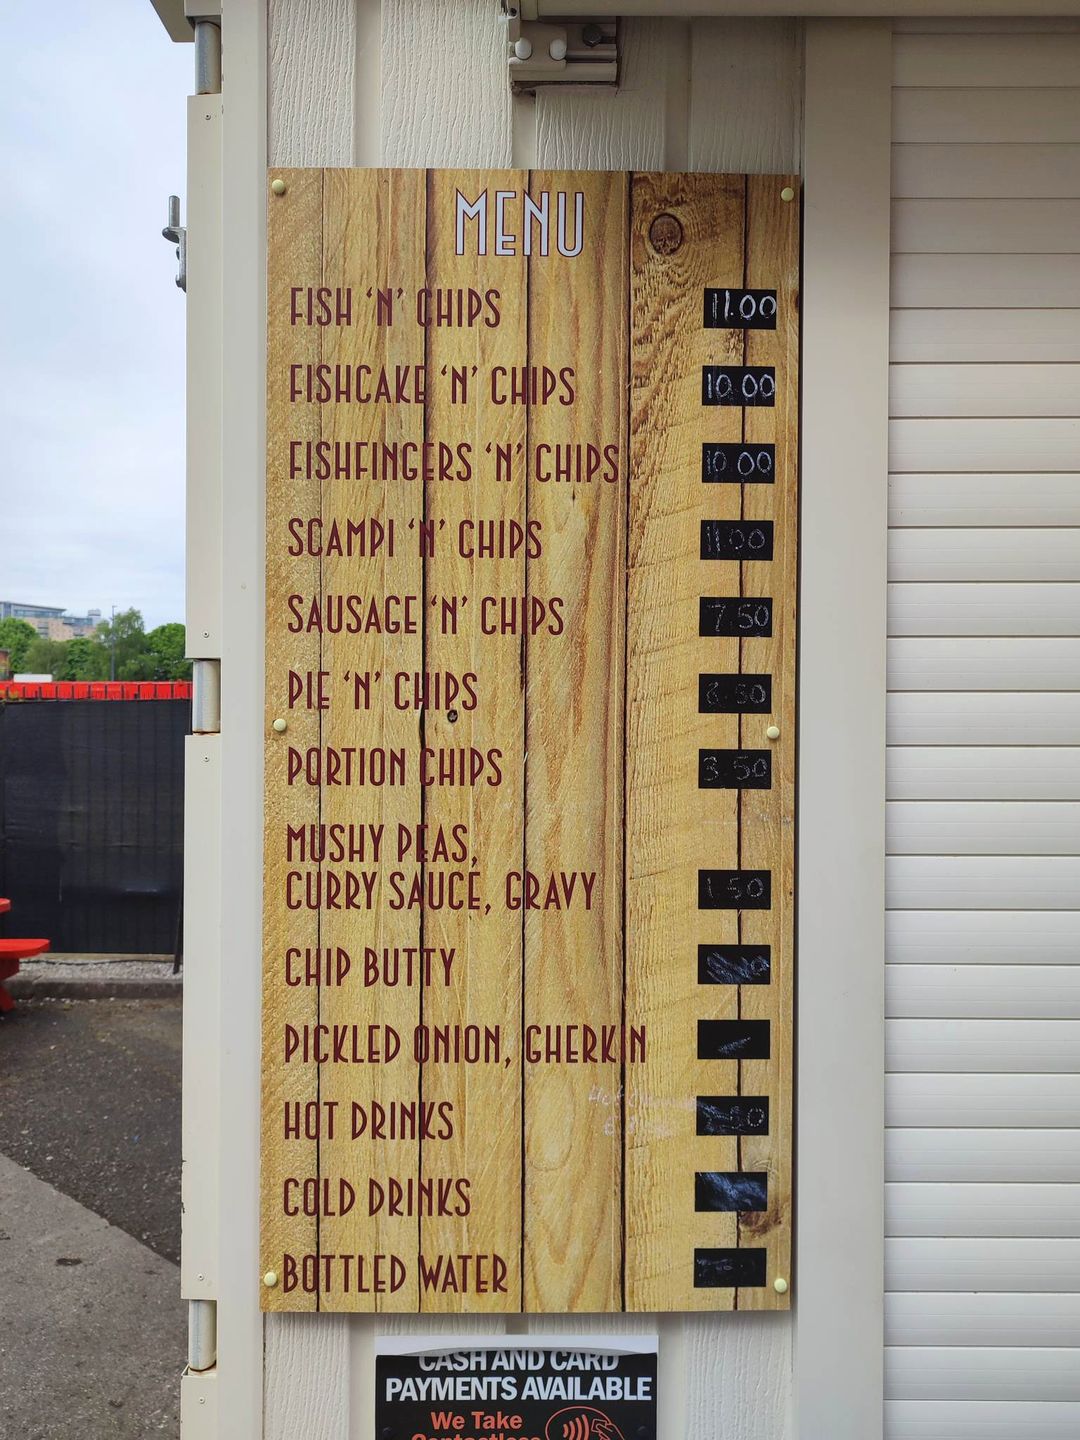 MENU
FISH ‘N’ CHIPS 11.00
FISHCAKE ‘N’ CHIPS 10.00
FISHFINGERS ‘N’ CHIPS 10.00
SCAMPI ‘N’ CHIPS 11.00
SAUSAGE ‘N’ CHIPS 7.50
PIE ‘N’ CHIPS
PORTION CHIPS 3.50
MUSHY PEAS,
CURRY SAUCE, GRAVY 1.50
CHIP BUTTY
PICKLED ONION, GHERKIN
HOT DRINKS
COLD DRINKS
BOTTLED WATER
CASH AND CARD
PAYMENTS AVAILABLE
We Take
Contactless